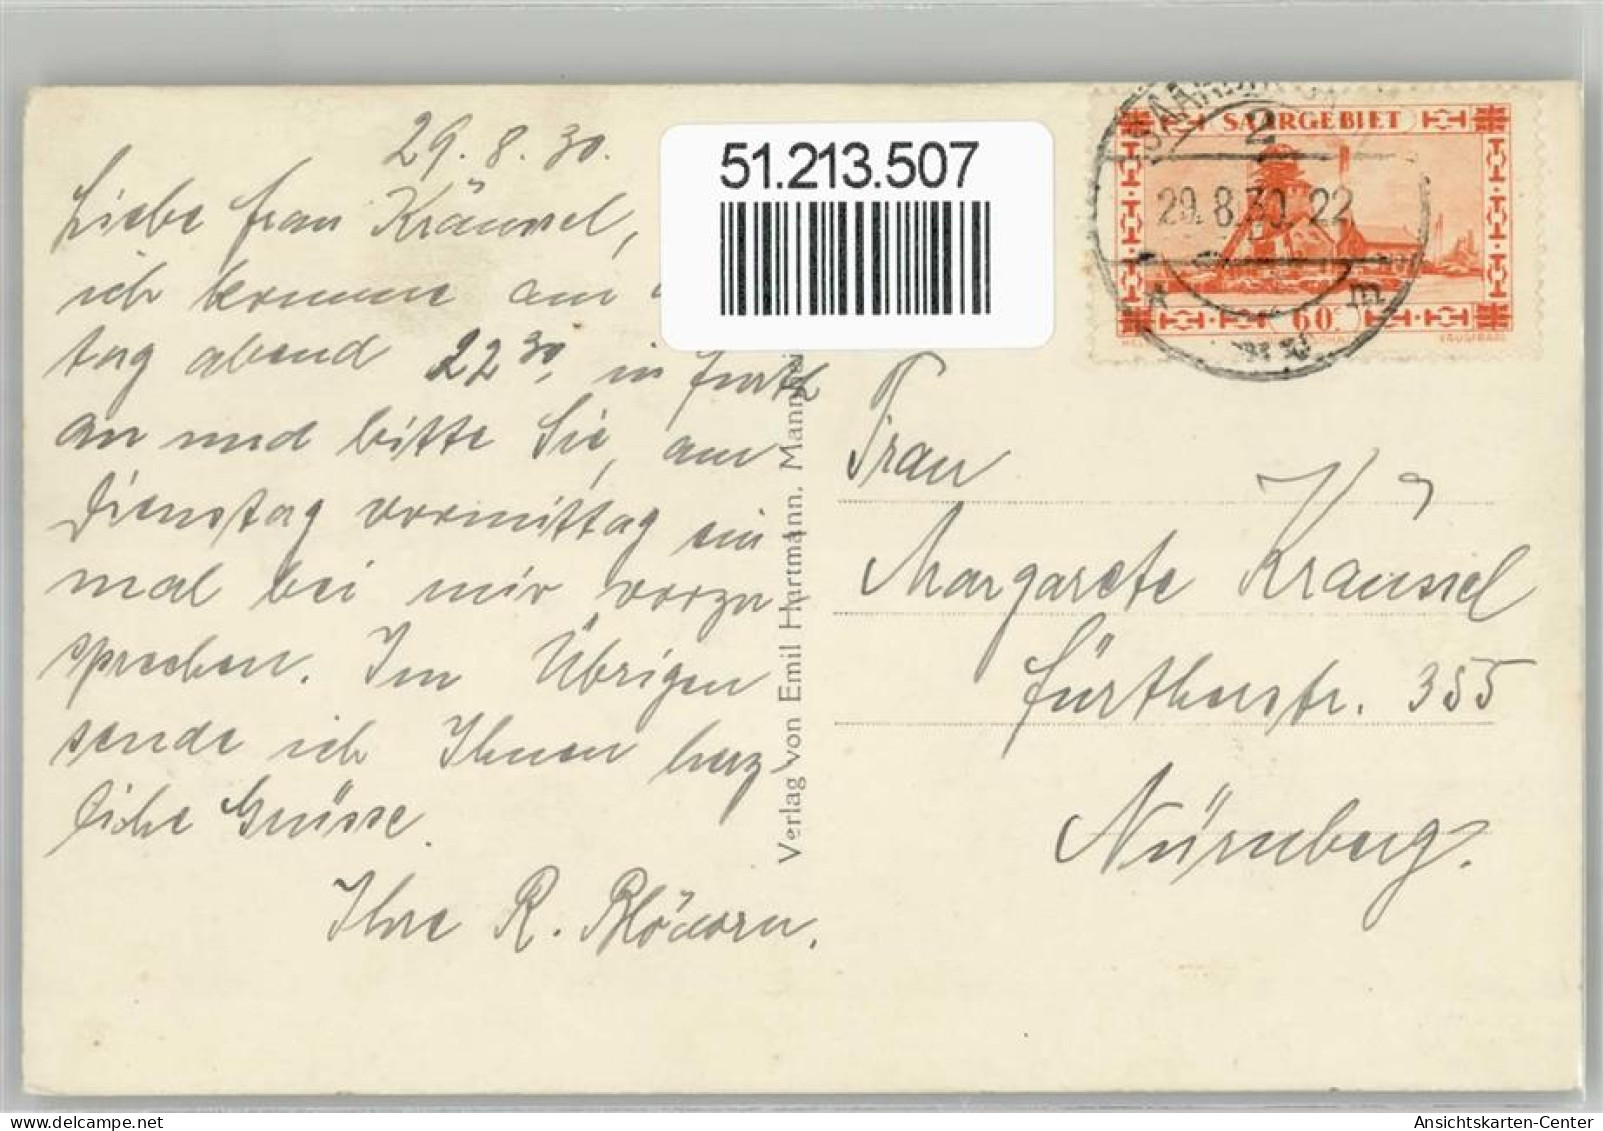 29. 8. 30.
Liebe Frau Kräussel,
ich komme am
tag abend 22 30, in Fürth
an und bitte Sie, am
Dienstag vormittag ein
mal bei mir vorzu
sprechen. Im Übrigen
sende ich Ihnen herz
liche Grüsse.
Ihre R.
51.213.507
Verlag von Emil Hartmann, Mannhei
SAARGEBIET
2
29.8.30.22
60
Frau
Margarete Kräussel
Fürtherstr. 355
Nürnberg.
delcampe.net
Ansichtskarten-Center